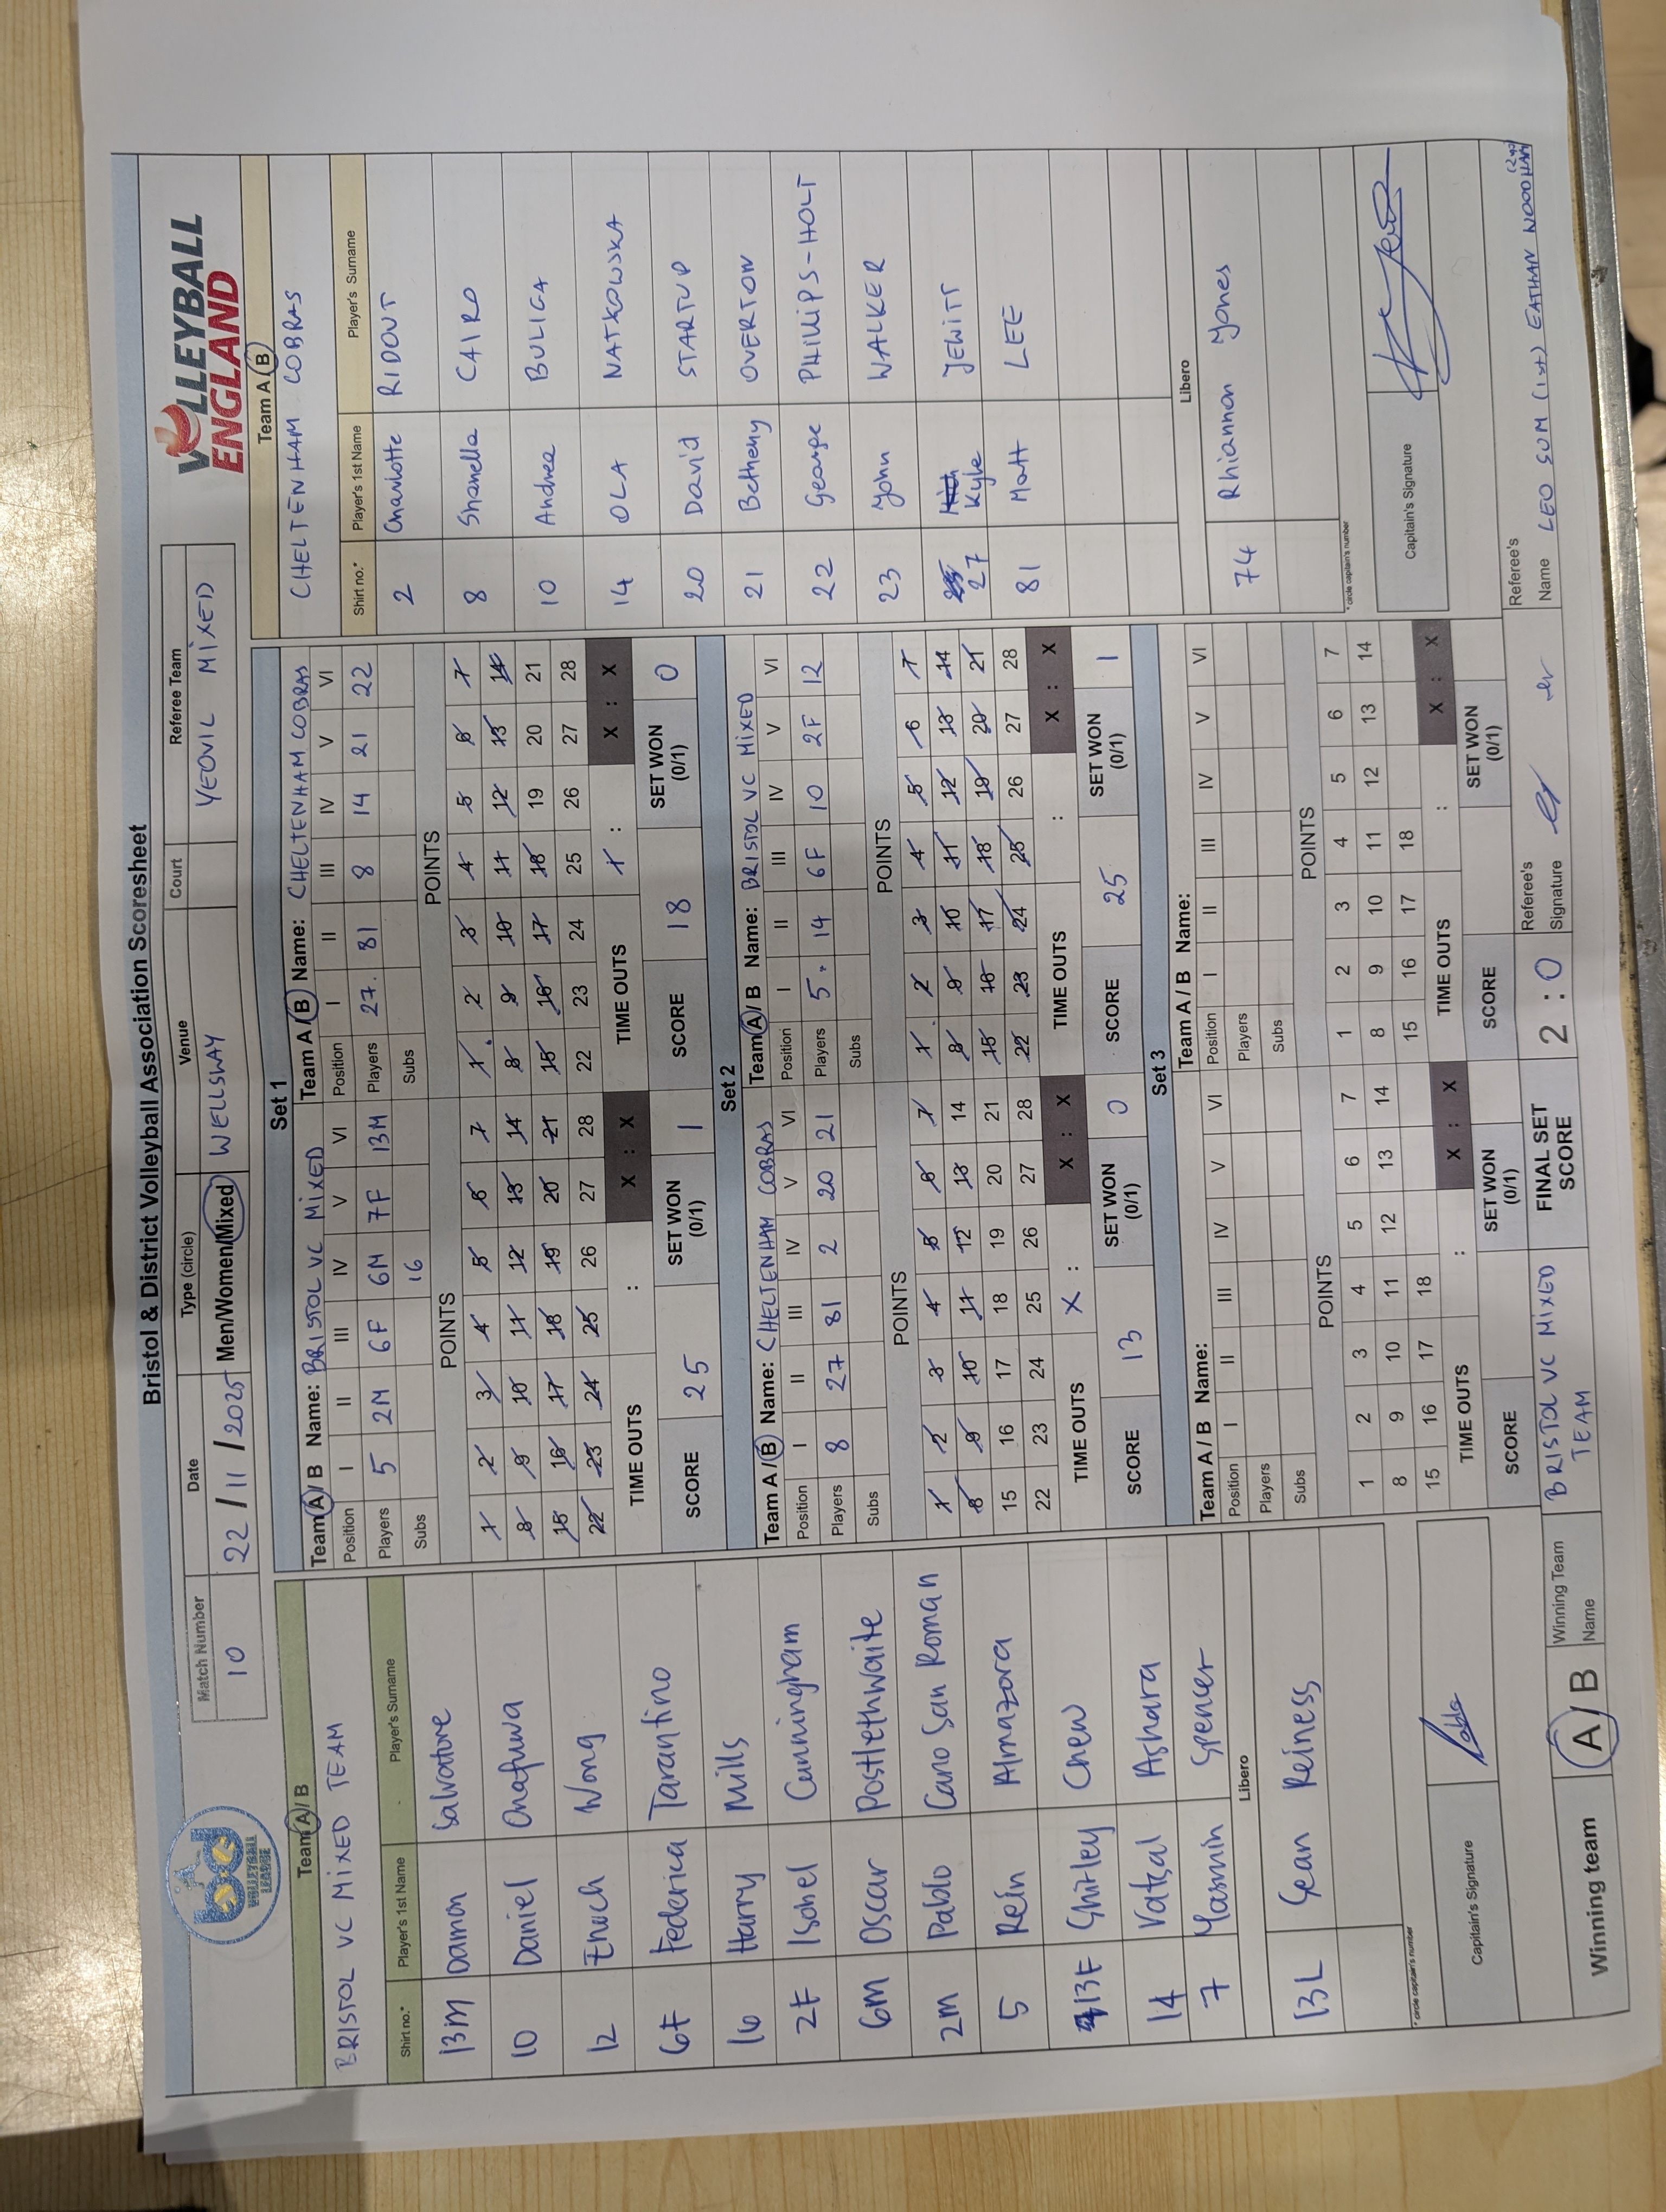 Bristol & District Volleyball Association Scoresheet
VOLLEYBALL LEAGUE
VOLLEYBALL ENGLAND
Match Number Date Type (circle) Venue Court Referee Team
10 22/11/2025 Men/Women/Mixed WELLSWAY YEOVIL MIXED
Team A/B
BRISTOL VC MIXED TEAM
Shirt no.* Player's 1st Name Player's Surname
13M Damon Salvatore
10 Daniel Onafuwa
12 Enoch Wong
6F Federica Tarantino
16 Harry Mills
2F Isobel Cunningham
6M Oscar Postlethwaite
2M Pablo Cano San Roman
5 Rein Almazora
13F Shirley Chew
14 Vatsal Ashara
7 Yasmin Spencer
Libero
13L Sean Reiness
*circle captain's number
Capitain's Signature Pablo
Set 1
Team A/B Name: BRISTOL VC MIXED
Position I II III IV V VI
Players 5 2M 6F 6M 7F 13M
Subs 16
POINTS
1 2 3 4 5 6 7
8 9 10 11 12 13 14
15 16 17 18 19 20 21
22 23 24 25 26 27 28
TIME OUTS : X : X
SCORE 25 SET WON (0/1) 1
Team A/B Name: CHELTENHAM COBRAS
Position I II III IV V VI
Players 27. 81 8 14 21 22
Subs
POINTS
1 2 3 4 5 6 7
8 9 10 11 12 13 14
15 16 17 18 19 20 21
22 23 24 25 26 27 28
TIME OUTS X : X : X
SCORE 18 SET WON (0/1) 0
Set 2
Team A/B Name: CHELTENHAM COBRAS
Position I II III IV V VI
Players 8 27 81 2 20 21
Subs
POINTS
1 2 3 4 5 6 7
8 9 10 11 12 13 14
15 16 17 18 19 20 21
22 23 24 25 26 27 28
TIME OUTS X : X : X
SCORE 13 SET WON (0/1) 0
Team A/B Name: BRISTOL VC MIXED
Position I II III IV V VI
Players 5. 14 6F 10 2F 12
Subs
POINTS
1 2 3 4 5 6 7
8 9 10 11 12 13 14
15 16 17 18 19 20 21
22 23 24 25 26 27 28
TIME OUTS : X : X
SCORE 25 SET WON (0/1) 1
Set 3
Team A/B Name:
Position I II III IV V VI
Players
Subs
POINTS
1 2 3 4 5 6 7
8 9 10 11 12 13 14
15 16 17 18
TIME OUTS : X : X
SCORE SET WON (0/1)
Team A/B Name:
Position I II III IV V VI
Players
Subs
POINTS
1 2 3 4 5 6 7
8 9 10 11 12 13 14
15 16 17 18
TIME OUTS : X : X
SCORE SET WON (0/1)
Team A/B
CHELTENHAM COBRAS
Shirt no.* Player's 1st Name Player's Surname
2 Charlotte RIDOUT
8 Shanella CAIRO
10 Andrea BULIGA
14 OLA NATKOWSKA
20 David STARTUP
21 Betheny OVERTON
22 George PHILLIPS-HOLT
23 John WALKER
27 Kyle JEWITT
81 Matt LEE
Libero
74 Rhiannon Jones
*circle captain's number
Capitain's Signature
Winning team A/B Winning Team Name BRISTOL VC MIXED TEAM FINAL SET SCORE 2:0 Referee's Signature Referee's Name LEO SUM (1st) EATHAN NOODHAM (2nd)